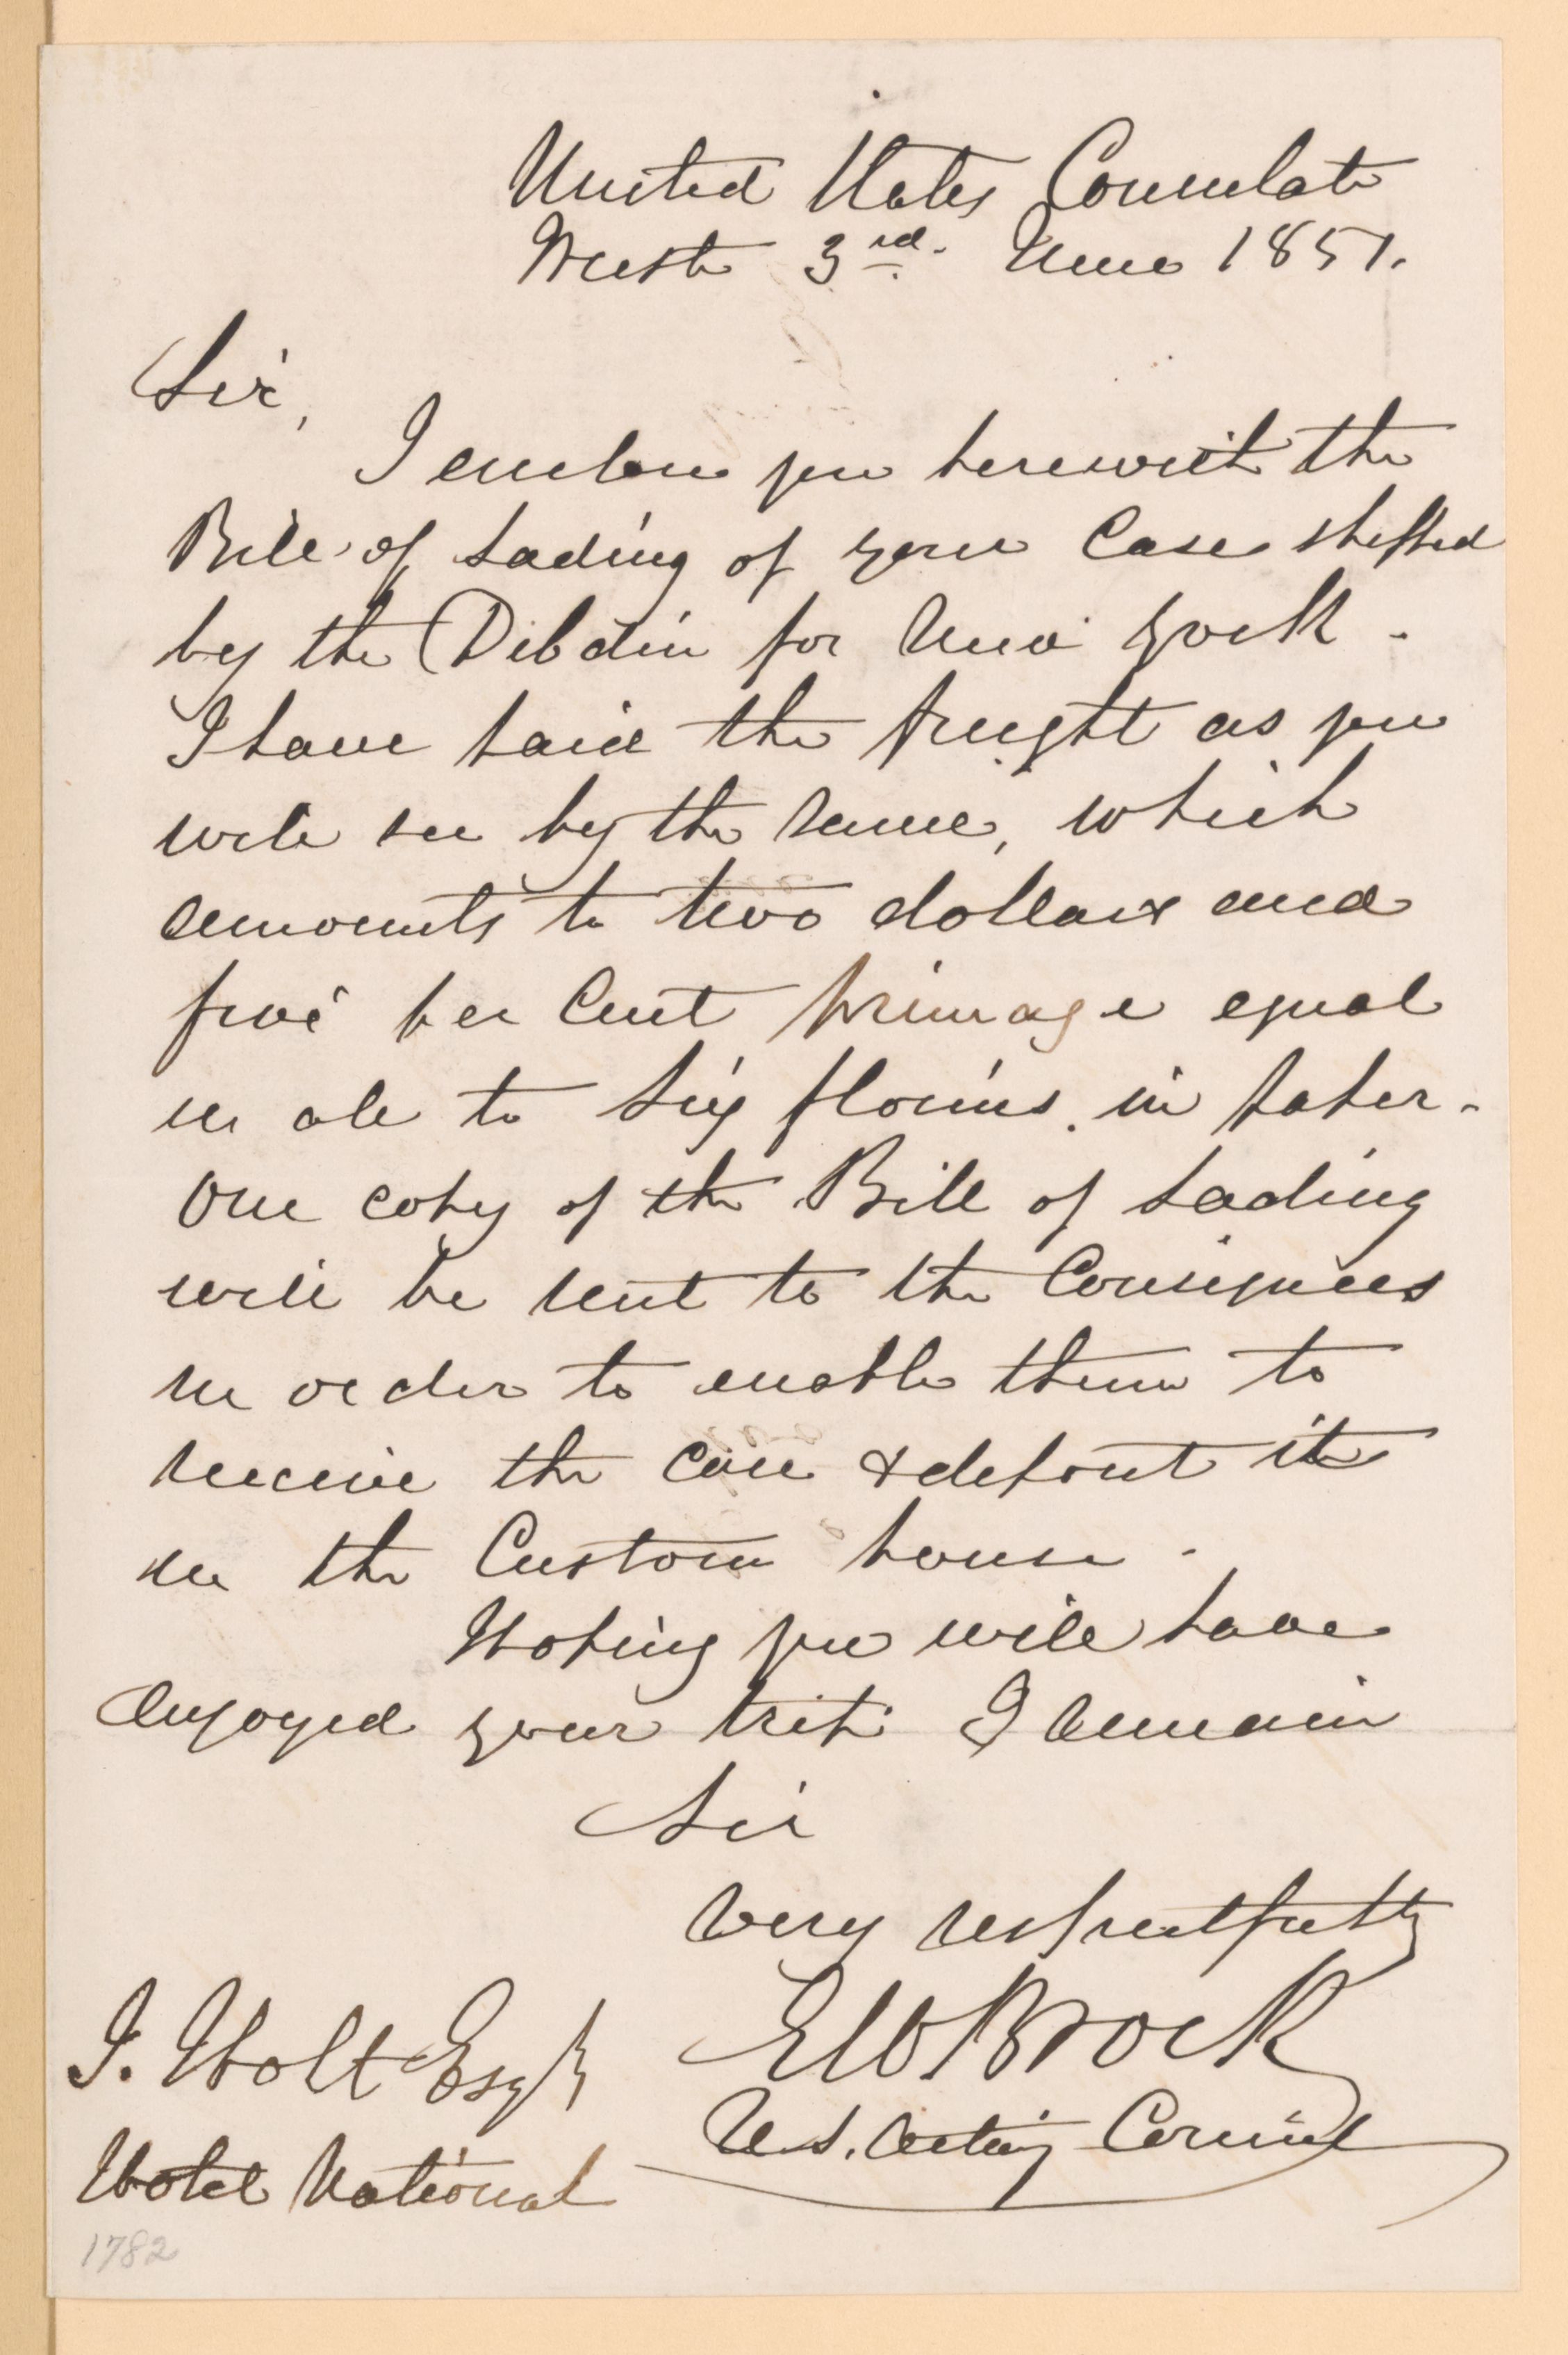 United States Consulate
Trieste 3rd. June 1851.
Sir,
I enclose you herewith the
Bill of Lading of your Case shipped
by the Dibdin for New York -
I have paid the freight as you
will see by the same, which
amounts to two dollars and
five per Cent primage equal
in all to six florins. in paper -
One copy of the Bill of Lading
will be sent to the Consignees
in order to enable them to
receive the case & deposit it
in the Custom house -
Hoping you will have
enjoyed your trip I remain
Sir
Very respectfully
E W Brock
U.S. Acting Consul
J. Holt Esqr
Hotel National
1782